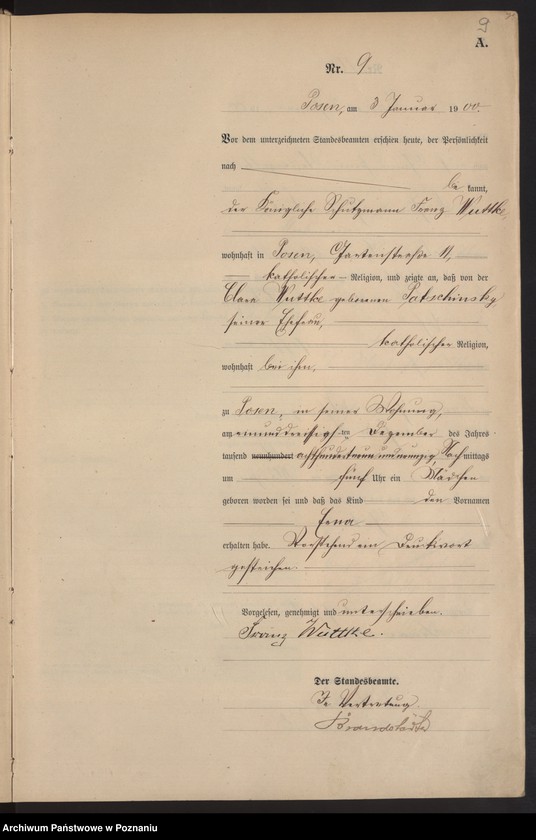 9
A.
Nr. 9
Posen, am 3 Januar 1900.
Vor dem unterzeichneten Standesbeamten erschien heute, der Persönlichkeit
nach
be kannt,
der Königliche Schutzmann Franz Wuttke,
wohnhaft in Posen, Gartenstraße 11,
katholischer Religion, und zeigte an, daß von der
Clara Wuttke geborenen Patschinsky
seiner Ehefrau,
katholischer Religion,
wohnhaft bei ihm,
zu Posen, in seiner Wohnung,
am einunddreißigsten Dezember des Jahres
tausend neunhundert achthundertneunundneunzig Nachmittags
um fünf Uhr ein Mädchen
geboren worden sei und daß das Kind den Vornamen
Erna
erhalten habe. Vorstehend ein Druckwort
gestrichen.
Vorgelesen, genehmigt und unterschrieben.
Franz Wuttke.
Der Standesbeamte.
In Vertretung
Archiwum Państwowe w Poznaniu